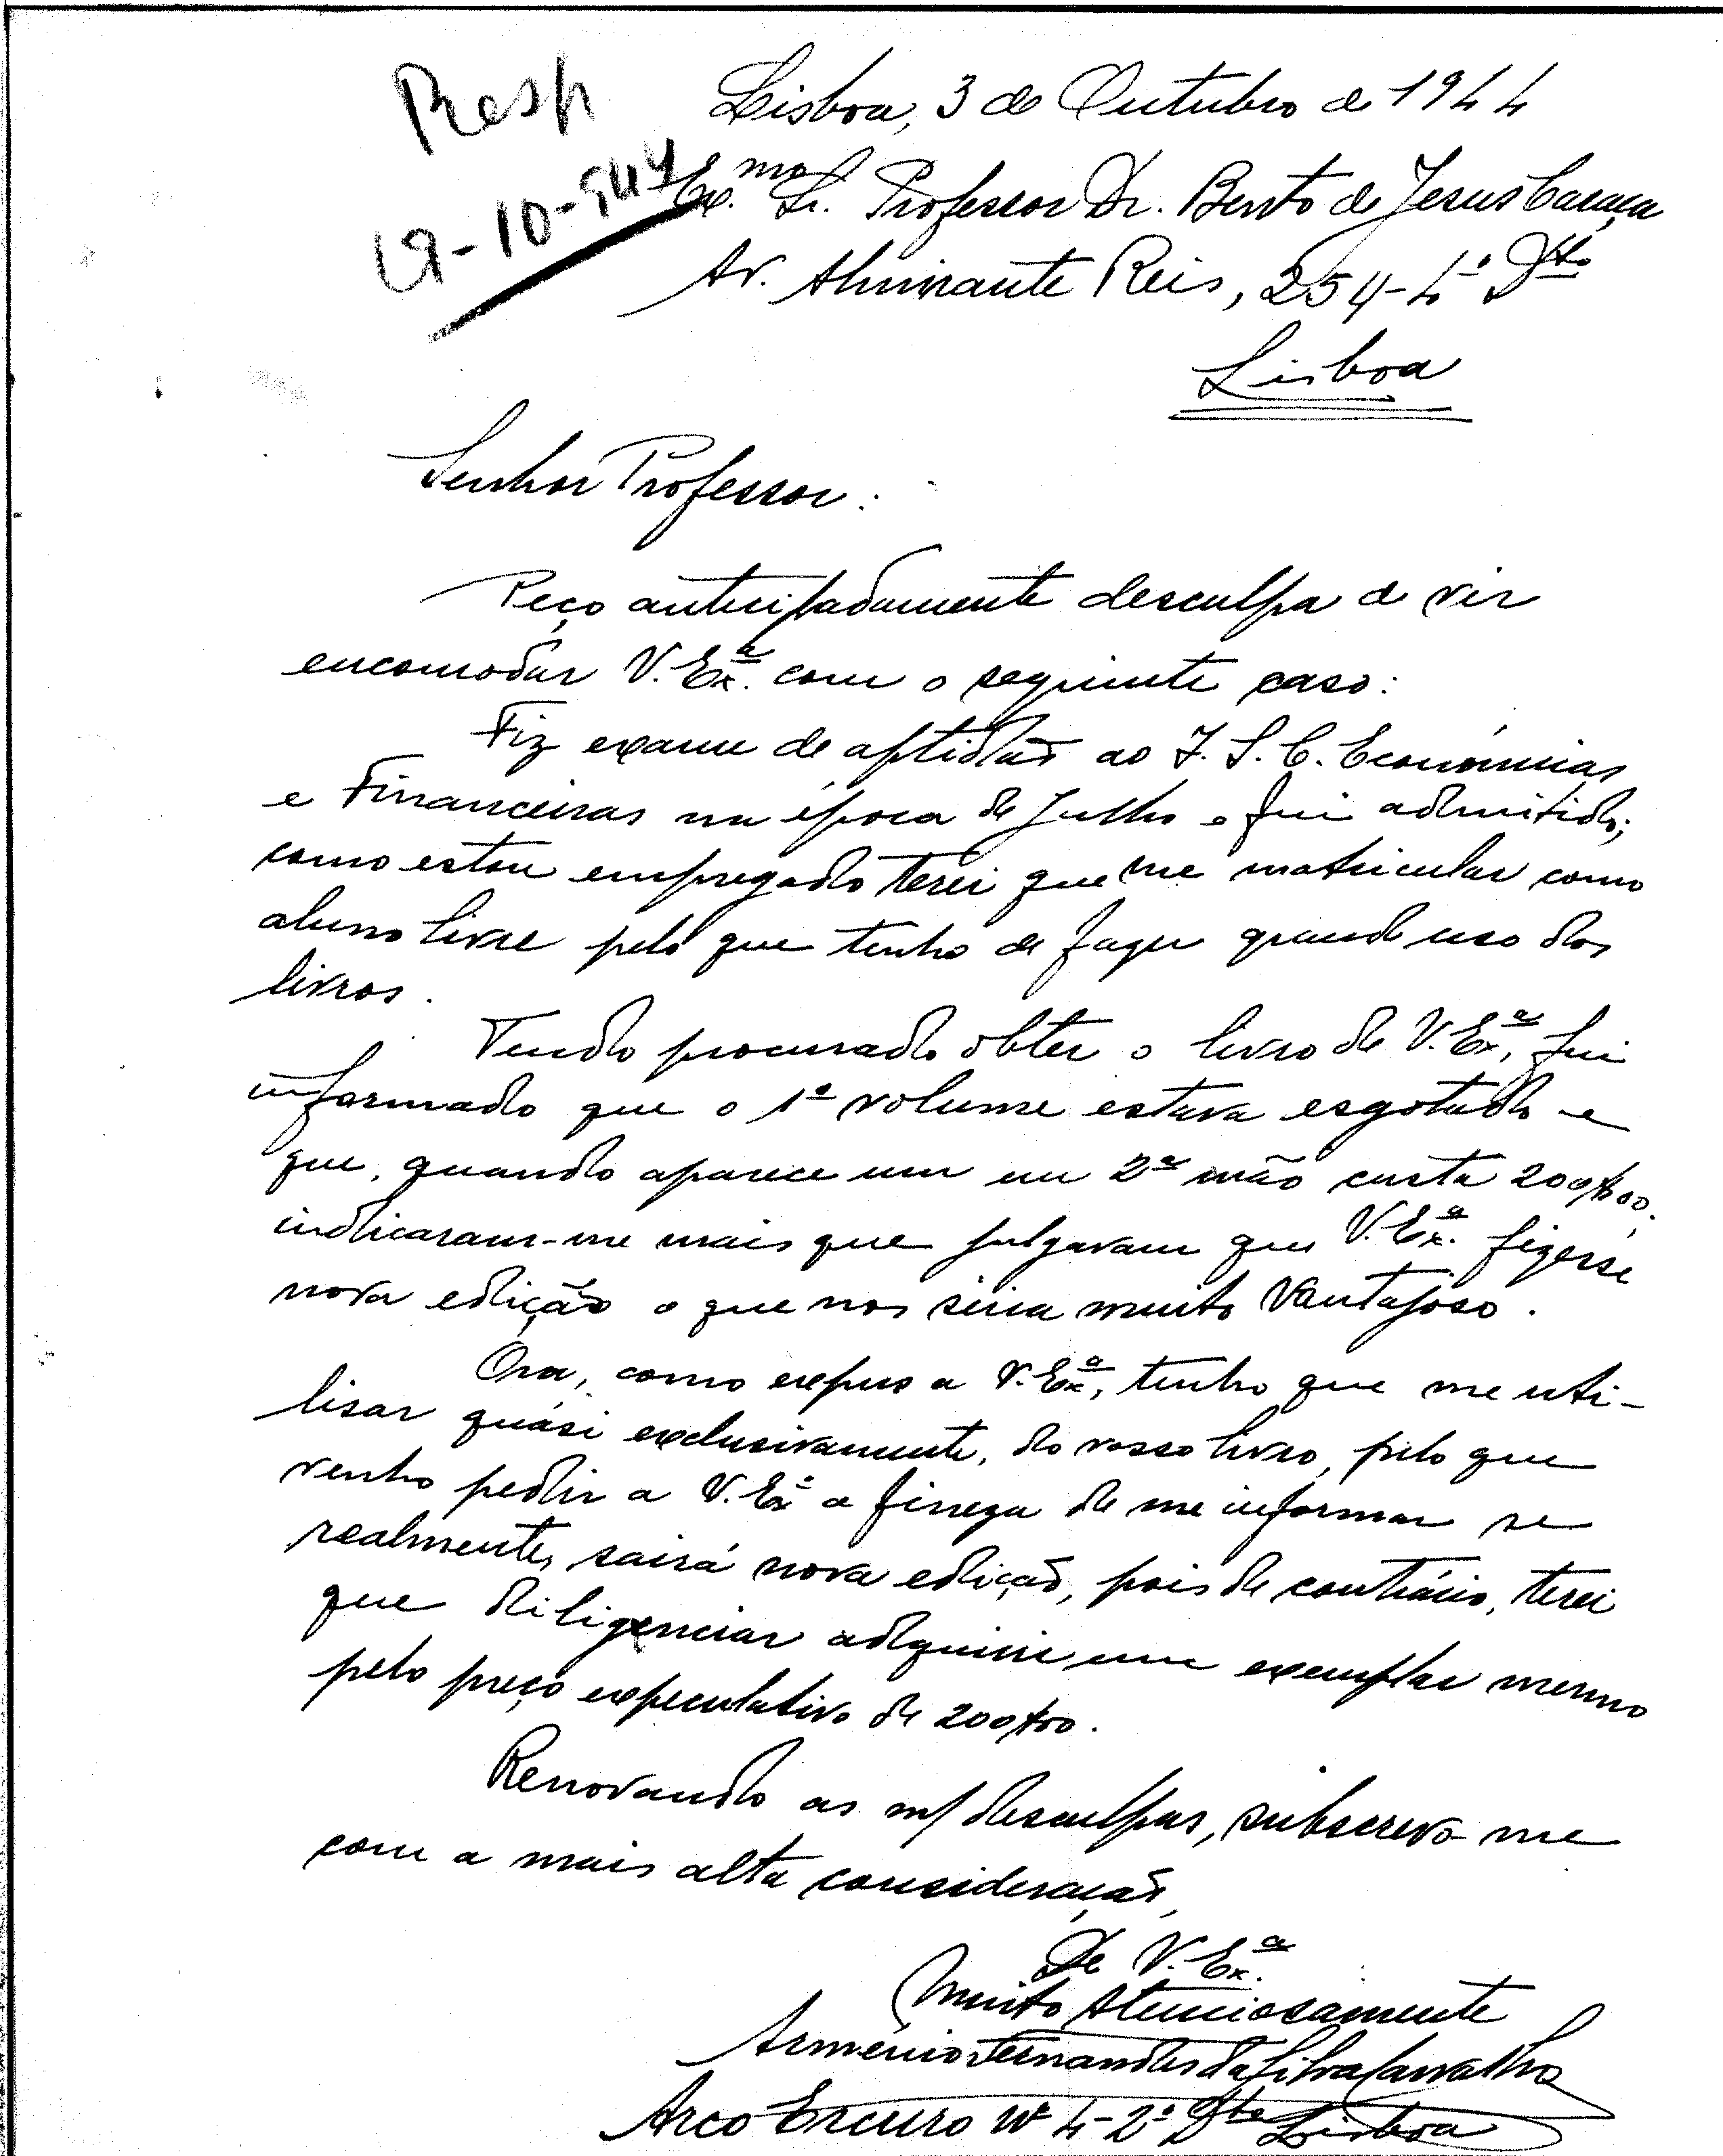 Resp
19-10-944
Lisboa, 3 de Outubro de 1944
Ex.mo Sr. Professor Dr. Bento de Jesus Caraça
Av. Almirante Reis, 254-4º Dto
Lisboa
Senhor Professor:
Peço antecipadamente desculpa de vir
encomodar V. Ex.ª com o seguinte caso:
Fiz exame de aptidão ao I. S. C. Económicas
e Financeiras na época de Julho e fui admitido;
como estou empregado terei que me matricular como
aluno livre pelo que tenho de fazer grande uso dos
livros.
Tendo procurado obter o livro de V. Ex.ª, fui
informado que o 1º volume estava esgotado e
que, quando aparece um em 2ª mão custa 200$00;
indicaram-me mais que julgavam que V. Ex.ª fizesse
nova edição o que nos seria muito vantajoso.
Ora, como expus a V. Ex.ª, tenho que me uti-
lisar quási exclusivamente, do vosso livro, pelo que
venho pedir a V. Exª a fineza de me informar se
realmente, sairá nova edição, pois de contrário, terei
que diligenciar adquirir um exemplar mesmo
pelo preço expeculativo de 200$00.
Renovando as m/ desculpas, subscrevo-me
com a mais alta consideração,
De V. Ex.ª
Muito Atenciosamente
Arménio Fernandes da Silva Carvalho
Arco Escuro Nº 4-2º Dto Lisboa